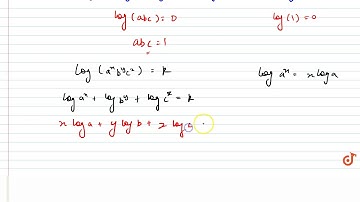 log (abc) = 0 log (1) = 0
abc = 1
log (aˣ bʸ cᶻ) = k log aˣ = x log a
log aˣ + log bʸ + log cᶻ = k
x log a + y log b + z log